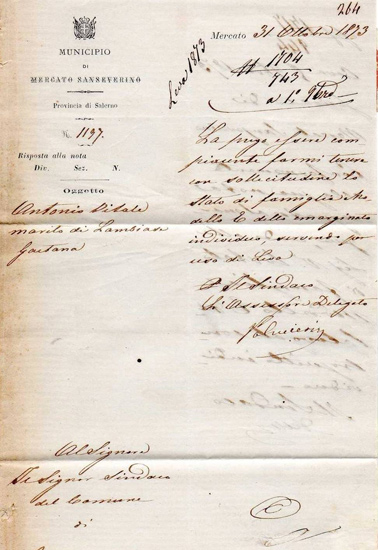 264
MUNICIPIO
DI
MERCATO SANSEVERINO
Provincia di Salerno
N. 1197.
Risposta alla nota
Div. Sez. N.
Oggetto
Antonio Vitale
marito di Lambiase
Gaetana
Leva 1873
Mercato 31 Ottobre 1873
1704
743
La prego essere com
piacente farmi tenere
con sollecitudine lo
Stato di famiglia Mo
dello E, dello emarginato
individuo, servendo per
uso di Leva
Pel Sindaco
L'Assessore Delegato
Al Signore
Il Signor Sindaco
del Comune
di